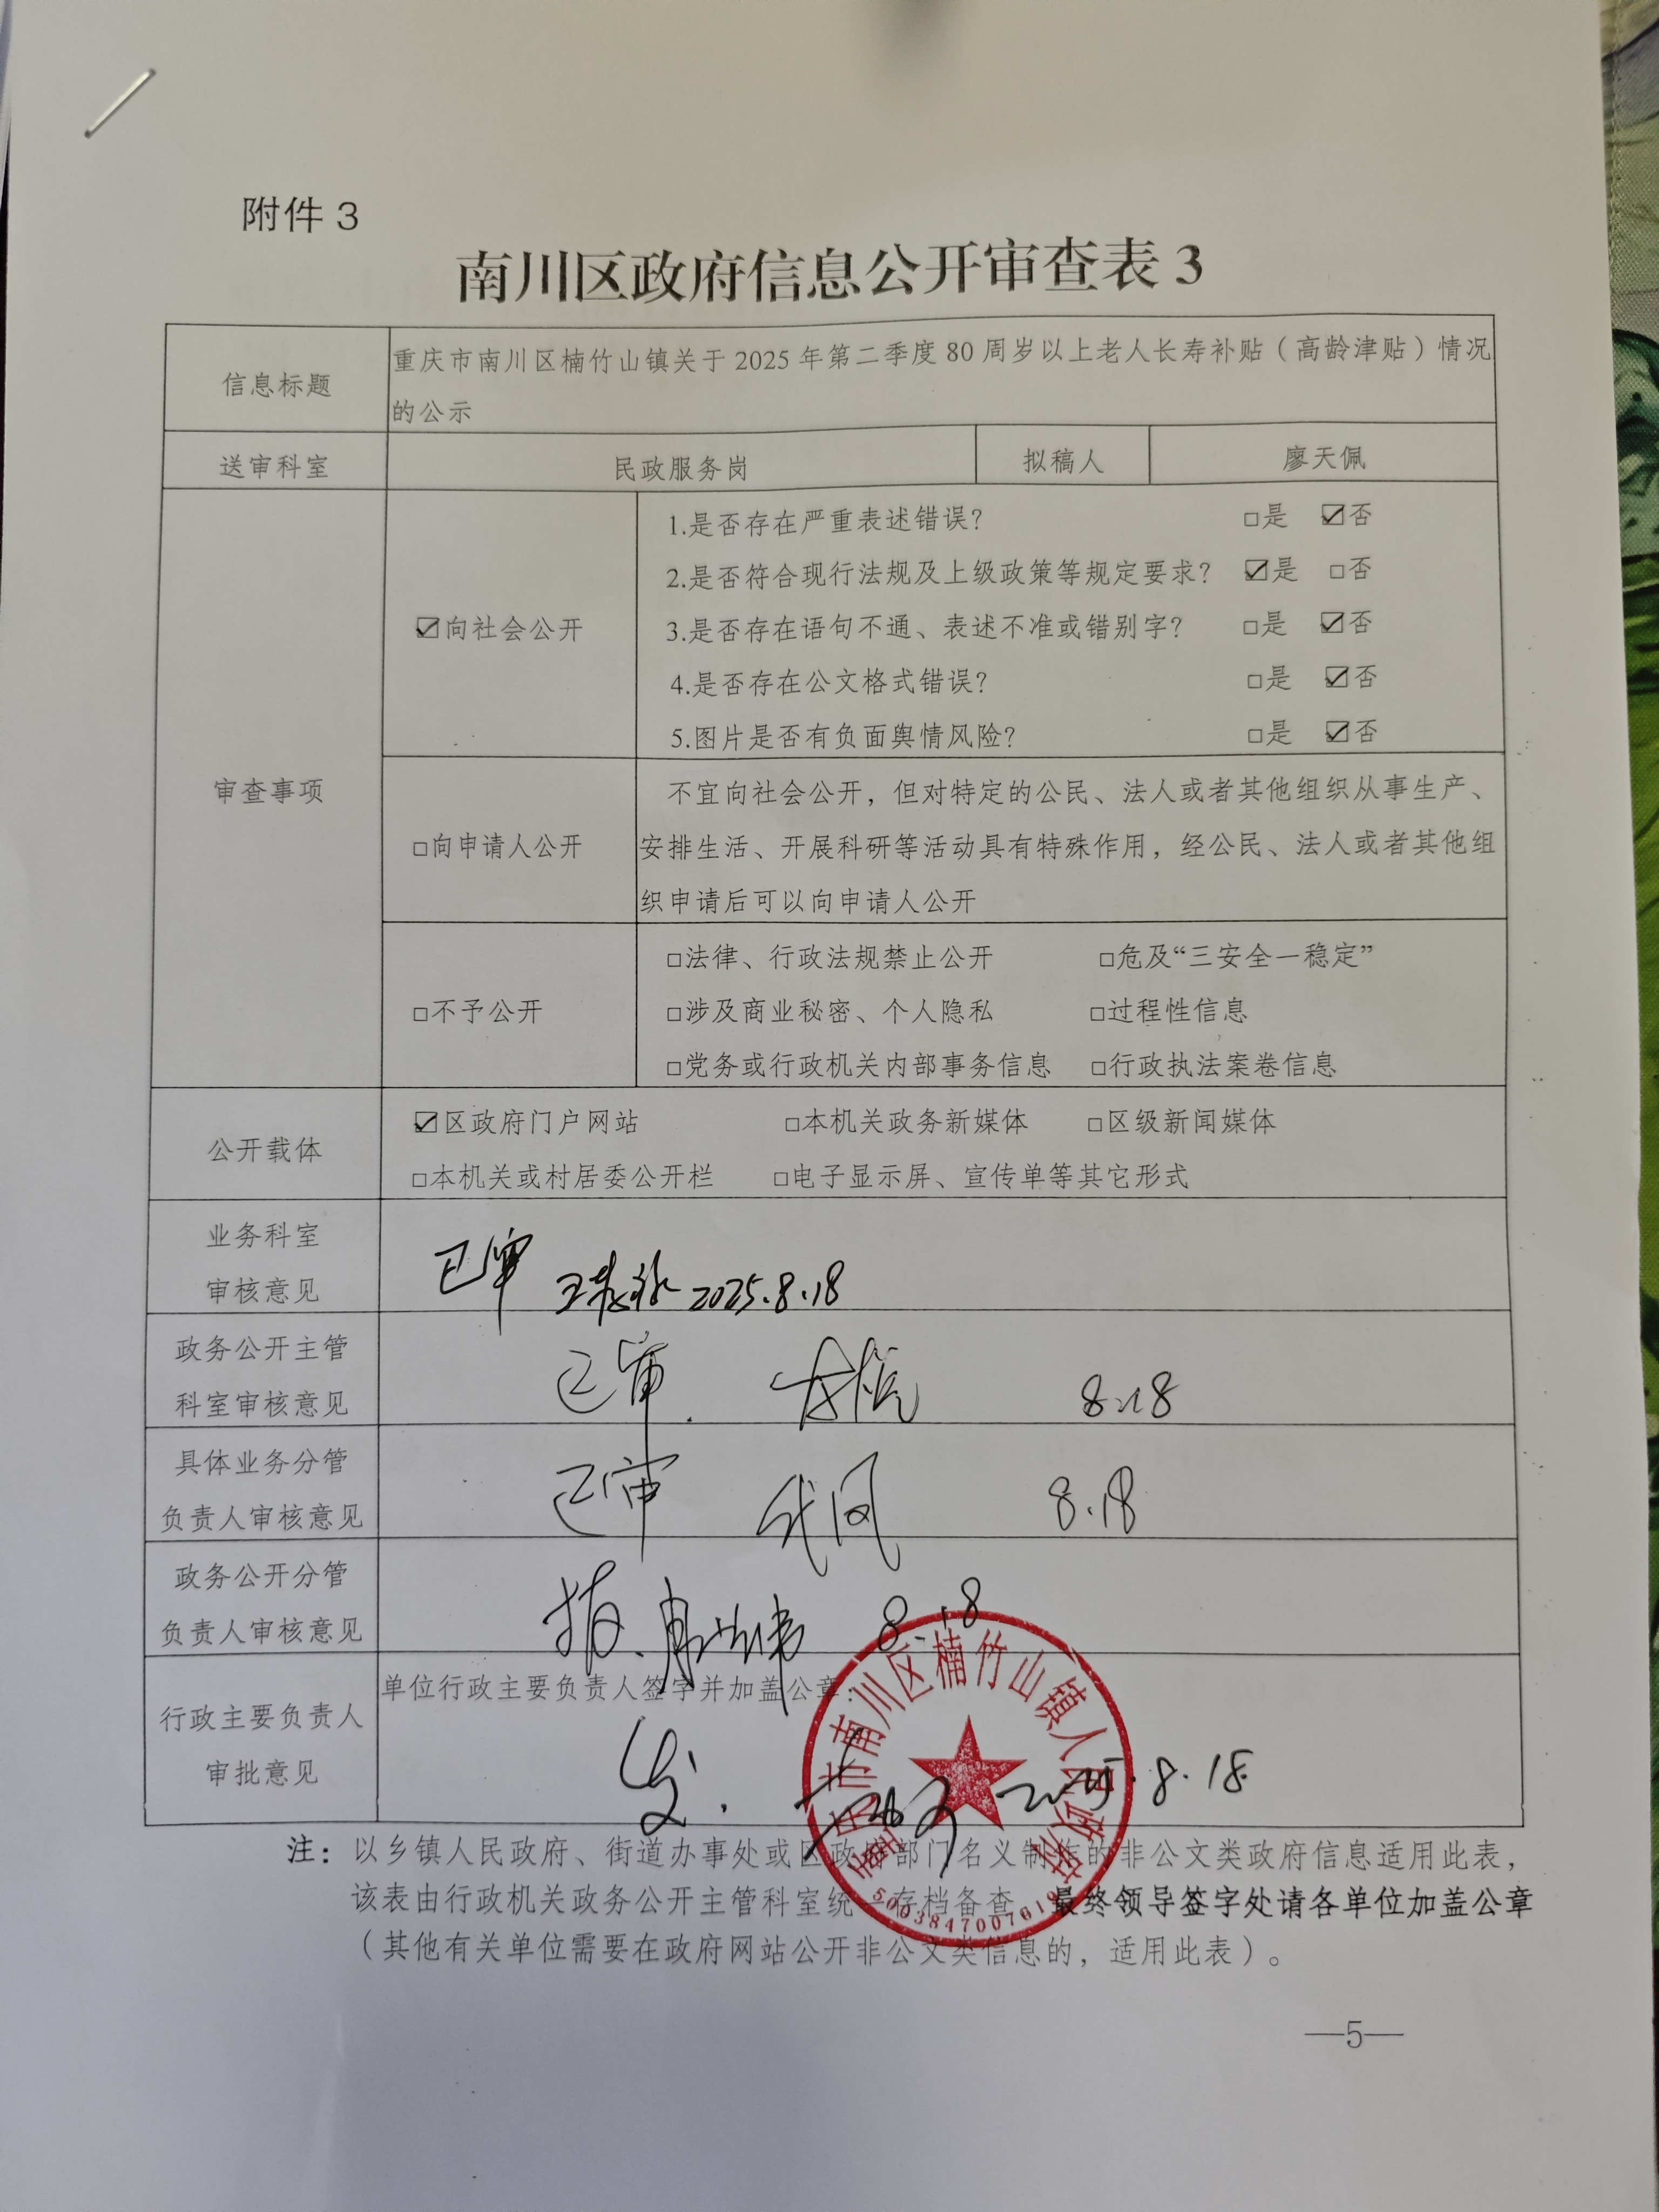 附件 3
南川区政府信息公开审查表 3
信息标题
重庆市南川区楠竹山镇关于 2025 年第二季度 80 周岁以上老人长寿补贴（高龄津贴）情况
的公示
送审科室 民政服务岗 拟稿人 廖天佩
审查事项
☑向社会公开
1.是否存在严重表述错误？ □是 ☑否
2.是否符合现行法规及上级政策等规定要求？ ☑是 □否
3.是否存在语句不通、表述不准或错别字？ □是 ☑否
4.是否存在公文格式错误？ □是 ☑否
5.图片是否有负面舆情风险？ □是 ☑否
□向申请人公开
不宜向社会公开，但对特定的公民、法人或者其他组织从事生产、
安排生活、开展科研等活动具有特殊作用，经公民、法人或者其他组
织申请后可以向申请人公开
□不予公开
□法律、行政法规禁止公开 □危及“三安全一稳定”
□涉及商业秘密、个人隐私 □过程性信息
□党务或行政机关内部事务信息 □行政执法案卷信息
公开载体
☑区政府门户网站 □本机关政务新媒体 □区级新闻媒体
□本机关或村居委公开栏 □电子显示屏、宣传单等其它形式
业务科室
审核意见
已审 2025.8.18
政务公开主管
科室审核意见
已审 8.18
具体业务分管
负责人审核意见
已审 8.18
政务公开分管
负责人审核意见
8.18
行政主要负责人
审批意见
单位行政主要负责人签字并加盖公章：
发. 2025.8.18
重庆市南川区楠竹山镇人民政府
注：以乡镇人民政府、街道办事处或区政府部门名义制作的非公文类政府信息适用此表，
该表由行政机关政务公开主管科室统一存档备查，最终领导签字处请各单位加盖公章
（其他有关单位需要在政府网站公开非公文类信息的，适用此表）。
—5—